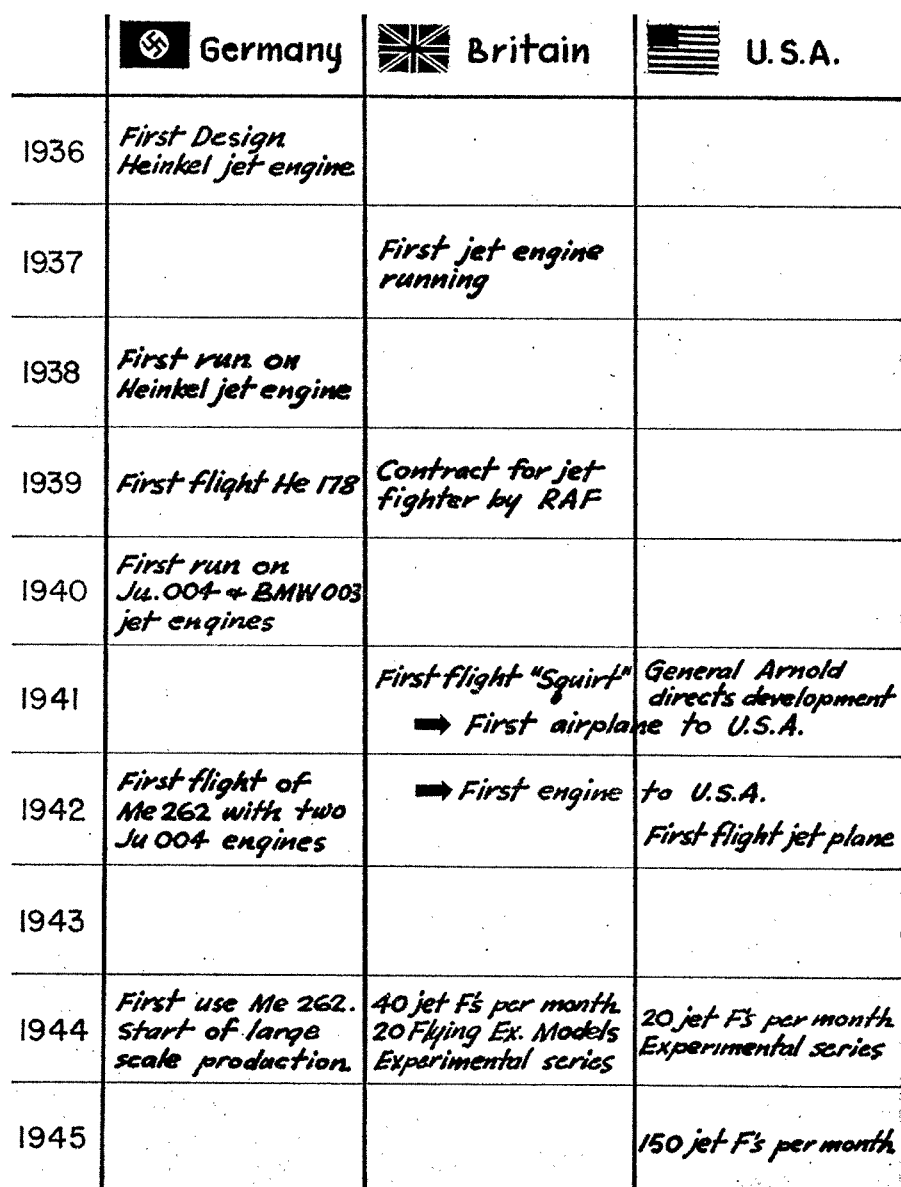 Germany Britain U.S.A.
1936
First Design
Heinkel jet engine
1937
First jet engine
running
1938
First run on
Heinkel jet engine
1939
First flight He 178
Contract for jet
fighter by RAF
1940
First run on
Ju.004 & BMW 003
jet engines
1941
First flight "Squirt"
General Arnold
directs development
➡ First airplane to U.S.A.
1942
First flight of
Me 262 with two
Ju 004 engines
➡ First engine to U.S.A.
First flight jet plane
1943
1944
First use Me 262.
Start of large
scale production.
40 jet F's per month
20 Flying Ex. Models
Experimental series
20 jet F's per month
Experimental series
1945
150 jet F's per month